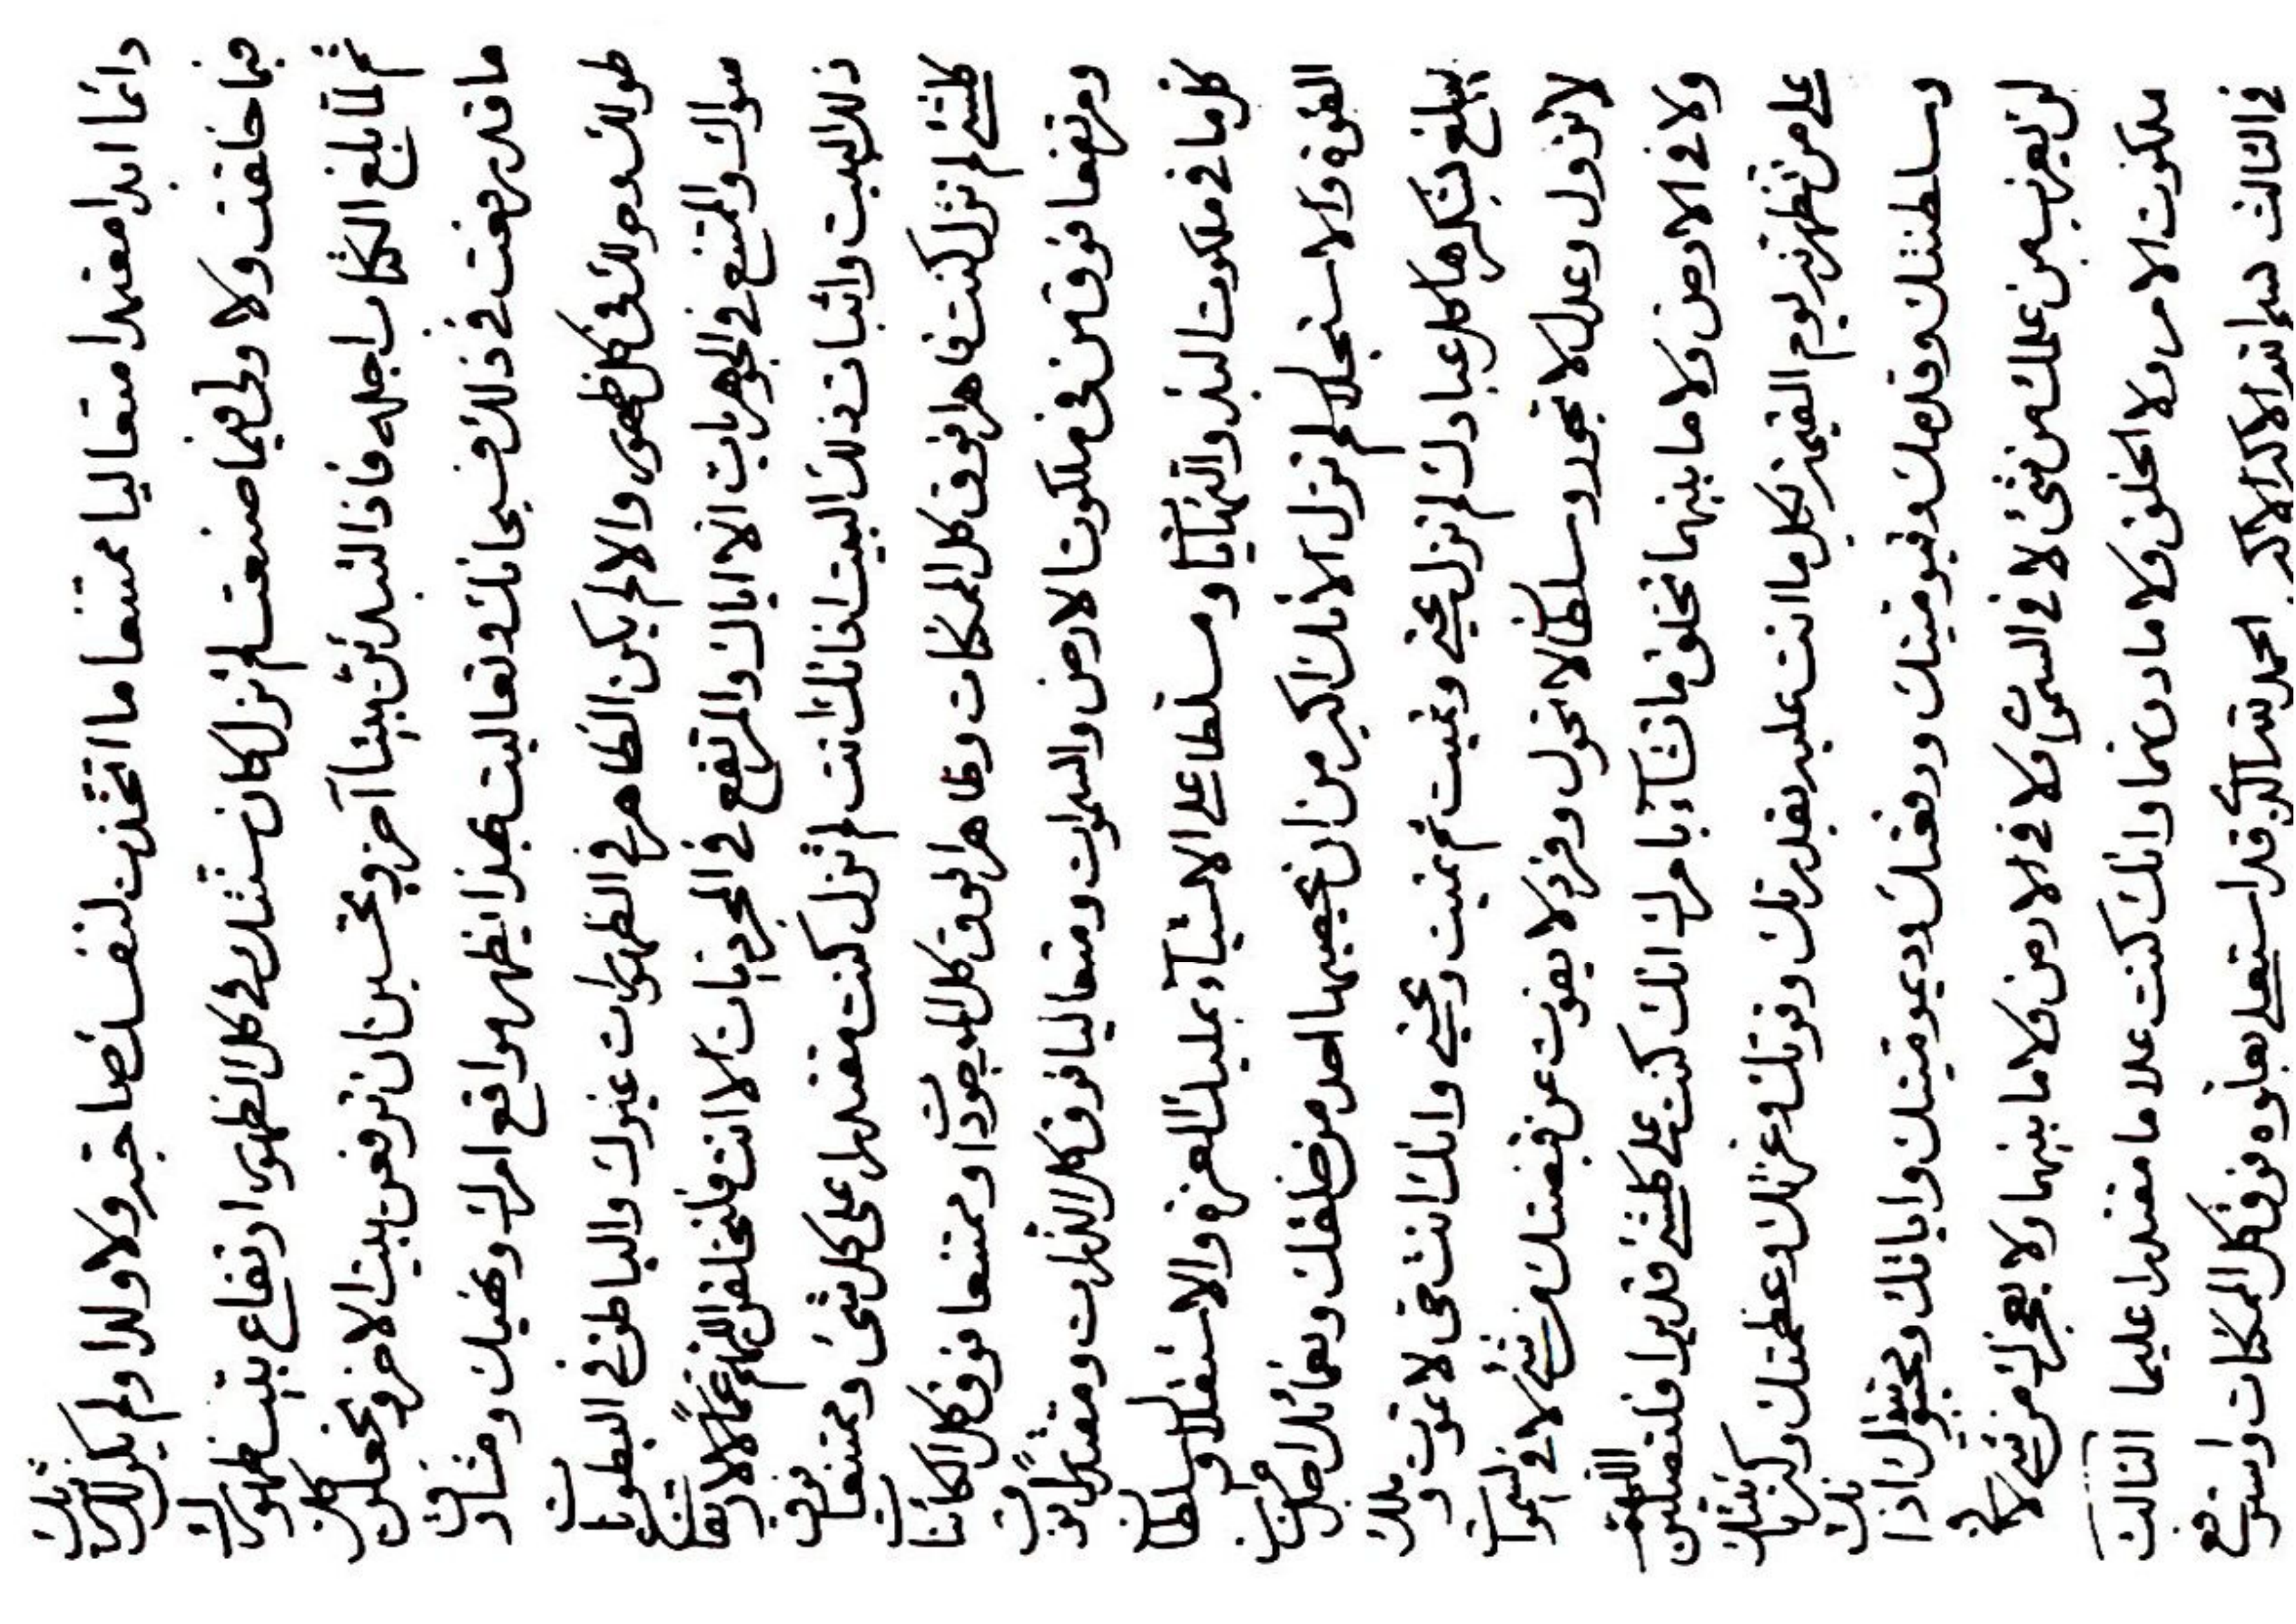 دائما ابدا معتمدا متعاليا ممتنعا ما اتخذت لنفسك صاحبة ولا ولدا ولم يكن لك شريك
فيما خلقت ولا ولى فيما صنعت لم تزل كان سنتك فى كل الظهور ارتفاع بيت ظهورك
ثم لما يبلغ الكتاب اجله فاذا لتبدئن بيتا آخر وتحسبن ان ترفعن بيت الاخر وتجعلن
ما قد رفعت فى ذلك فسبحانك وتعاليت بهذا يظهر مواقع امرك ونهيك
طولك وحولك فى كل ظهور والا لم يكن الظاهر فى الظهورات غيرك والباطن فى البطونات
سواك والممتنع فى الجوهريات الا اياك والمرتفع فى المجردیات الا انت فلتخلقن اللهم
ذلك البيت واثبات ذلك البيت انك انت لم تزل كنت مقتدرا على كل شئ وممتنعا فوق
كلشئ لم تزل كنت قاهرا فوق كل الممكنات وظاهرا فوق كل الموجودات وممتنعا فوق كل الكائنات
ومرتفعا فوق من فى ملكوت الارض والسموات ومتعاليا فوق كل الذرات ومقتدرا فوق
كل ما فى ملكوت البدء والنهايات ومسلطا على الاشياء بمليك العزة والاستقلال وسلطان
القوة والاستجلال لم تزل لانك اكبر من ان يحصيها احد من خلقك ونعمائك اجل من ان
يبلغ بشكرها كل عبادك لم تزل تحيى وتميت ثم تميت وتحيى وانك انت حى لا تموت وملك
لا تزول وعدل لا تجور وسلطان لا تحول وفرد لا يفوت عن قبضتك من شئ لا فى السموات
ولا فى الارض ولا ما بينهما تخلق ما تشاء بامرك انك كنت على كلشئ قديرا فلتصلين اللهم
على من تظهرنه يوم القيمة بكل ما انت عليه بقدرتك وقوتك وعزتك وعظمتك وكبريائك
وسلطنتك وقدمك وقيوميتك ورفعتك وديموميتك واياتك ومحبوبك اذا
لن يعزب من علمك من شئ لا فى السموات ولا فى الارض ولا ما بينهما ولا يعجزك من شئ لا فى
ملكوت الامر ولا الخلق ولا ما دونهما وانك كنت علاما مقتدرا عليما الثالث
فى الثالث بسم الله الاكبر الاكبر الحمد لله الذى قد استعلى بعلوه فوق كل الممكنات واسترفع